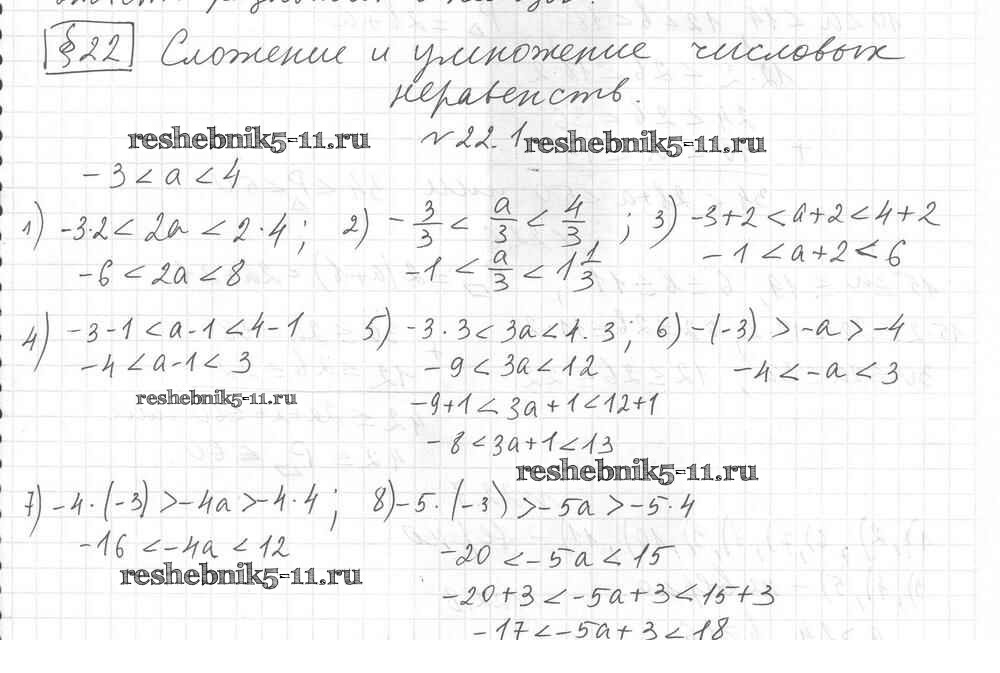 §22 Сложение и умножение числовых
неравенств.
reshebnik5-11.ru № 22.1 reshebnik5-11.ru
-3 < a < 4
1) -3·2 < 2a < 2·4; 2) -3/3 < a/3 < 4/3; 3) -3+2 < a+2 < 4+2
-6 < 2a < 8 -1 < a/3 < 1 1/3 -1 < a+2 < 6
4) -3-1 < a-1 < 4-1 5) -3·3 < 3a < 4·3; 6) -(-3) > -a > -4
-4 < a-1 < 3 -9 < 3a < 12 -4 < -a < 3
reshebnik5-11.ru -9+1 < 3a+1 < 12+1
-8 < 3a+1 < 13
reshebnik5-11.ru
7) -4·(-3) > -4a > -4·4; 8) -5·(-3) > -5a > -5·4
-16 < -4a < 12 -20 < -5a < 15
reshebnik5-11.ru
-20+3 < -5a+3 < 15+3
-17 < -5a+3 < 18